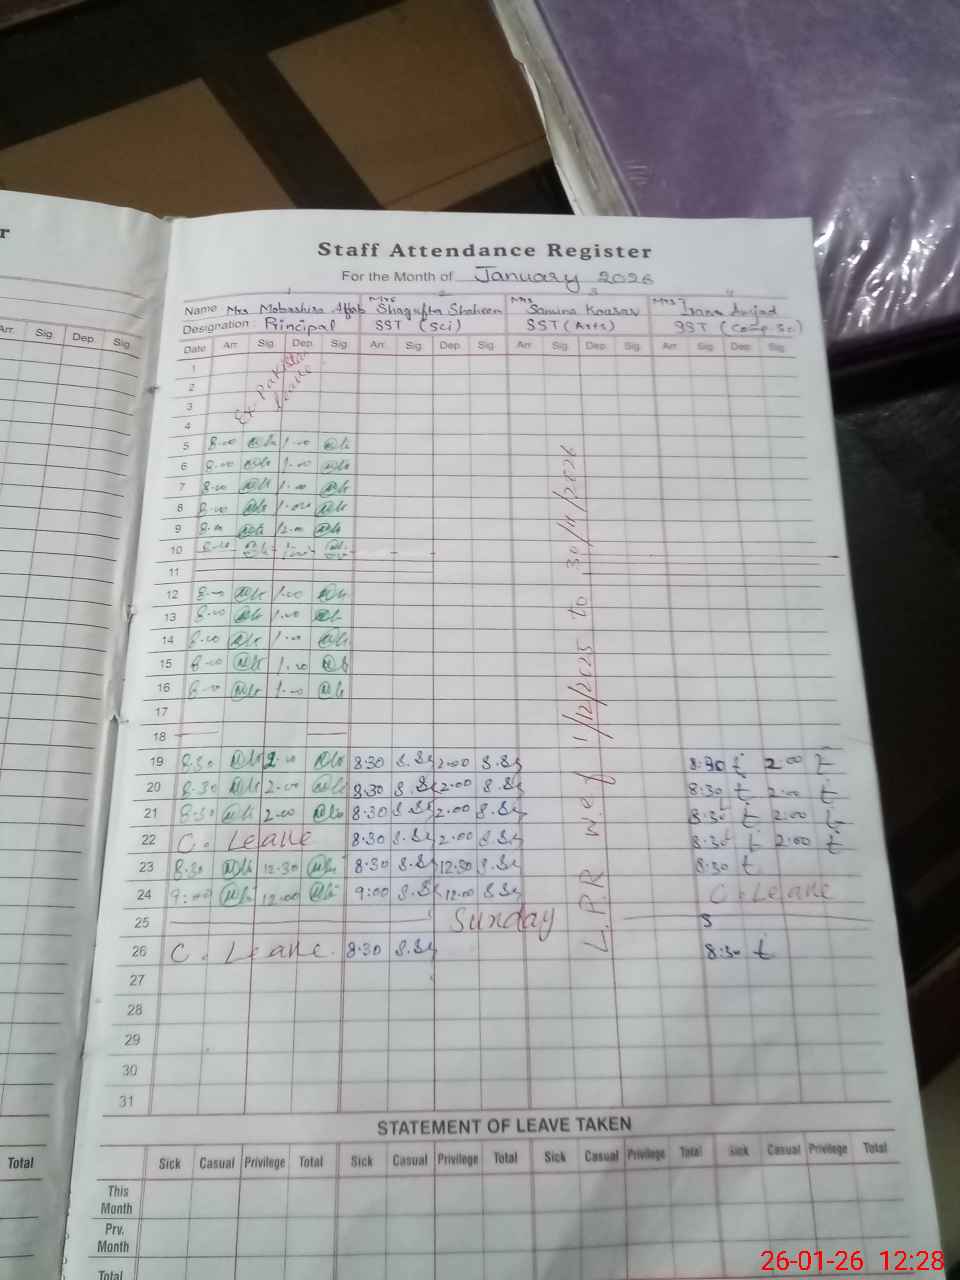 r
Staff Attendance Register
For the Month of January 2026
1 2 3 4
Name Mrs Mobashira Aftab Mrs Shagufta Shaheen Mrs Samina Kausar Mrs Amjad
Designation Principal SST (Sci) SST (Arts) SST (Comp. Sc)
Arr. Sig. Dep. Sig.
Date Arr. Sig. Dep. Sig. Arr. Sig. Dep. Sig. Arr. Sig. Dep. Sig. Arr. Sig. Dep. Sig.
1
2
3
4
Ex Pakistan Leave
5 8.00 1.00
6 8.00 1.00
7 8.00 1.00
8 8.00 1.00
9 8.00 12.00
10 8.00 1.00
11
12 8.00 1.00
13 8.00 1.00
14 8.00 1.00
15 8.00 1.00
16 8.00 1.00
17
18
19 8.30 2.00 8.30 S.Sh 2.00 S.Sh 8.30 t 2.00 t
20 8.30 2.00 8.30 S.Sh 2.00 S.Sh 8.30 t 2.00 t
21 8.30 2.00 8.30 S.Sh 2.00 S.Sh 8.30 t 2.00 t
22 C. Leave 8.30 S.Sh 2.00 S.Sh 8.30 t 2.00 t
23 8.30 12.30 8.30 S.Sh 12.30 S.Sh 8.30 t
24 9:00 12.00 9:00 S.Sh 12.00 S.Sh C. Leave
25 Sunday S
26 C. Leave. 8.30 S.Sh 8.30 t
27
28
29
30
31
L.P.R w.e.f 1/12/2025 to 30/11/2026
STATEMENT OF LEAVE TAKEN
Total Sick Casual Privilege Total Sick Casual Privilege Total Sick Casual Privilege Total Sick Casual Privilege Total
This Month
Prv. Month
Total
26-01-26 12:28